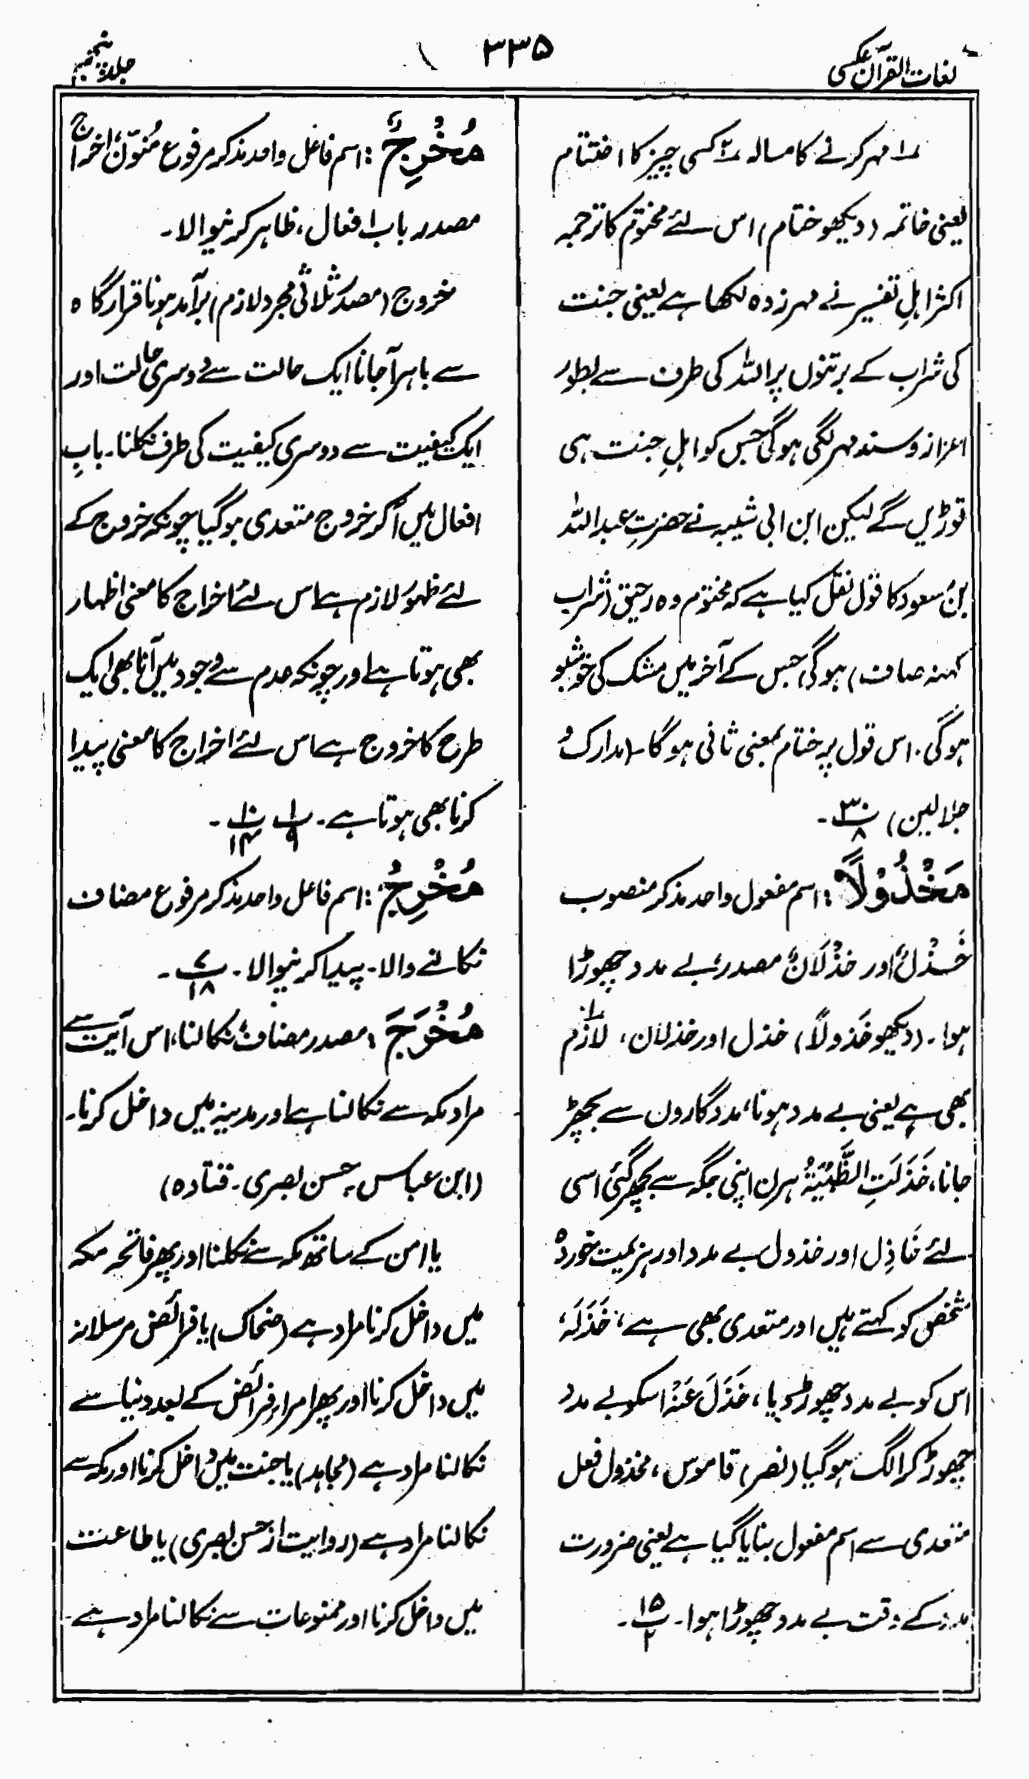 لغات القرآن عکسی
۳۳۵
جلد پنجم
۱؎ مہر کرنے کا مسالہ ۲؎ کسی چیز کا اختتام
یعنی خاتمہ (دیکھو ختام) اس لئے مختوم کا ترجمہ
اکثر اہلِ تفسیر نے مہر زدہ لکھا ہے یعنی جنت
کی شراب کے برتنوں پر اللہ کی طرف سے بطور
اعزاز و سند مہر لگی ہوگی جس کو اہلِ جنت ہی
توڑیں گے لیکن ابن ابی شیبہ نے حضرتِ عبداللہ
بن مسعود کا قول نقل کیا ہے کہ مختوم وہ رحیق (شراب
کہنہ صاف) ہوگی جس کے آخر میں مشک کی خوشبو
ہوگی۔ اس قول پر ختام بمعنی ثانی ہوگا۔ (مدارک و
جلالین) ۳۰/۸ ۔
مَخْذُوْلًا : اسم مفعول واحد مذکر منصوب
خَذْلٌ اور خذْلَانٌ مصدر، بے مدد چھوڑا
ہوا۔ (دیکھو خَذولاً) خذل اور خذلان، لازم
بھی ہے یعنی بے مدد ہونا، مددگاروں سے بچھڑ
جانا، خَذَلَتِ الظَّبْیَۃُ ہرن اپنی جگہ سے بچھڑ گئی اسی
لئے خَاذِل اور خذول بے مدد اور ہزیمت خوردہ
شخص کو کہتے ہیں اور متعدی بھی ہے، خَذَلَہٗ
اس کو بے مدد چھوڑ دیا، خَذَلَ عَنْہُ اسکو بے مدد
چھوڑ کر الگ ہوگیا (نصر) قاموس، مخذول فعل
متعدی سے اسم مفعول بنایا گیا ہے یعنی ضرورت
مدد کے وقت بے مدد چھوڑا ہوا۔ ۱۵/۲ ۔
مُخْرِجٌ : اسم فاعل واحد مذکر مرفوع مُنَوّن، اخراج
مصدر باب افعال، ظاہر کرنیوالا۔
خروج (مصدر ثلاثی مجرد لازم) برآمد ہونا قرار گاہ
سے باہر آجانا ایک حالت سے دوسری حالت اور
ایک کیفیت سے دوسری کیفیت کی طرف نکلنا۔ بابِ
افعال میں آکر خروج متعدی ہوگیا چونکہ خروج کے
لئے ظہور لازم ہے اس لئے اخراج کا معنی اظہار
بھی ہوتا ہے اور چونکہ عدم سے وجود میں آنا بھی ایک
طرح کا خروج ہے اس لئے اخراج کا معنی پیدا
کرنا بھی ہوتا ہے۔ ۱/۹ ۱۰/۱۴ ۔
مُخْرِجُ : اسم فاعل واحد مذکر مرفوع مضاف
نکالنے والا۔ پیدا کرنیوالا۔ ۷/۱۸ ۔
مُخْرَجَ : مصدر مضاف، نکالنا، اس آیت سے
مراد مکہ سے نکالنا ہے اور مدینہ میں داخل کرنا۔
(ابن عباس، حسن بصری۔ قتادہ)
یا امن کے ساتھ مکہ سے نکلنا اور پھر فاتحہ مکہ
میں داخل کرنا مراد ہے (ضحاک) یا فرائض مرسلانہ
میں داخل کرنا اور پھر امرار فرائض کے بعد دنیا سے
نکالنا مراد ہے (مجاہد) یا جنت میں داخل کرنا اور مکہ سے
نکالنا مراد ہے (روایت از حسن بصری) یا طاعت
میں داخل کرنا اور ممنوعات سے نکالنا مراد ہے۔